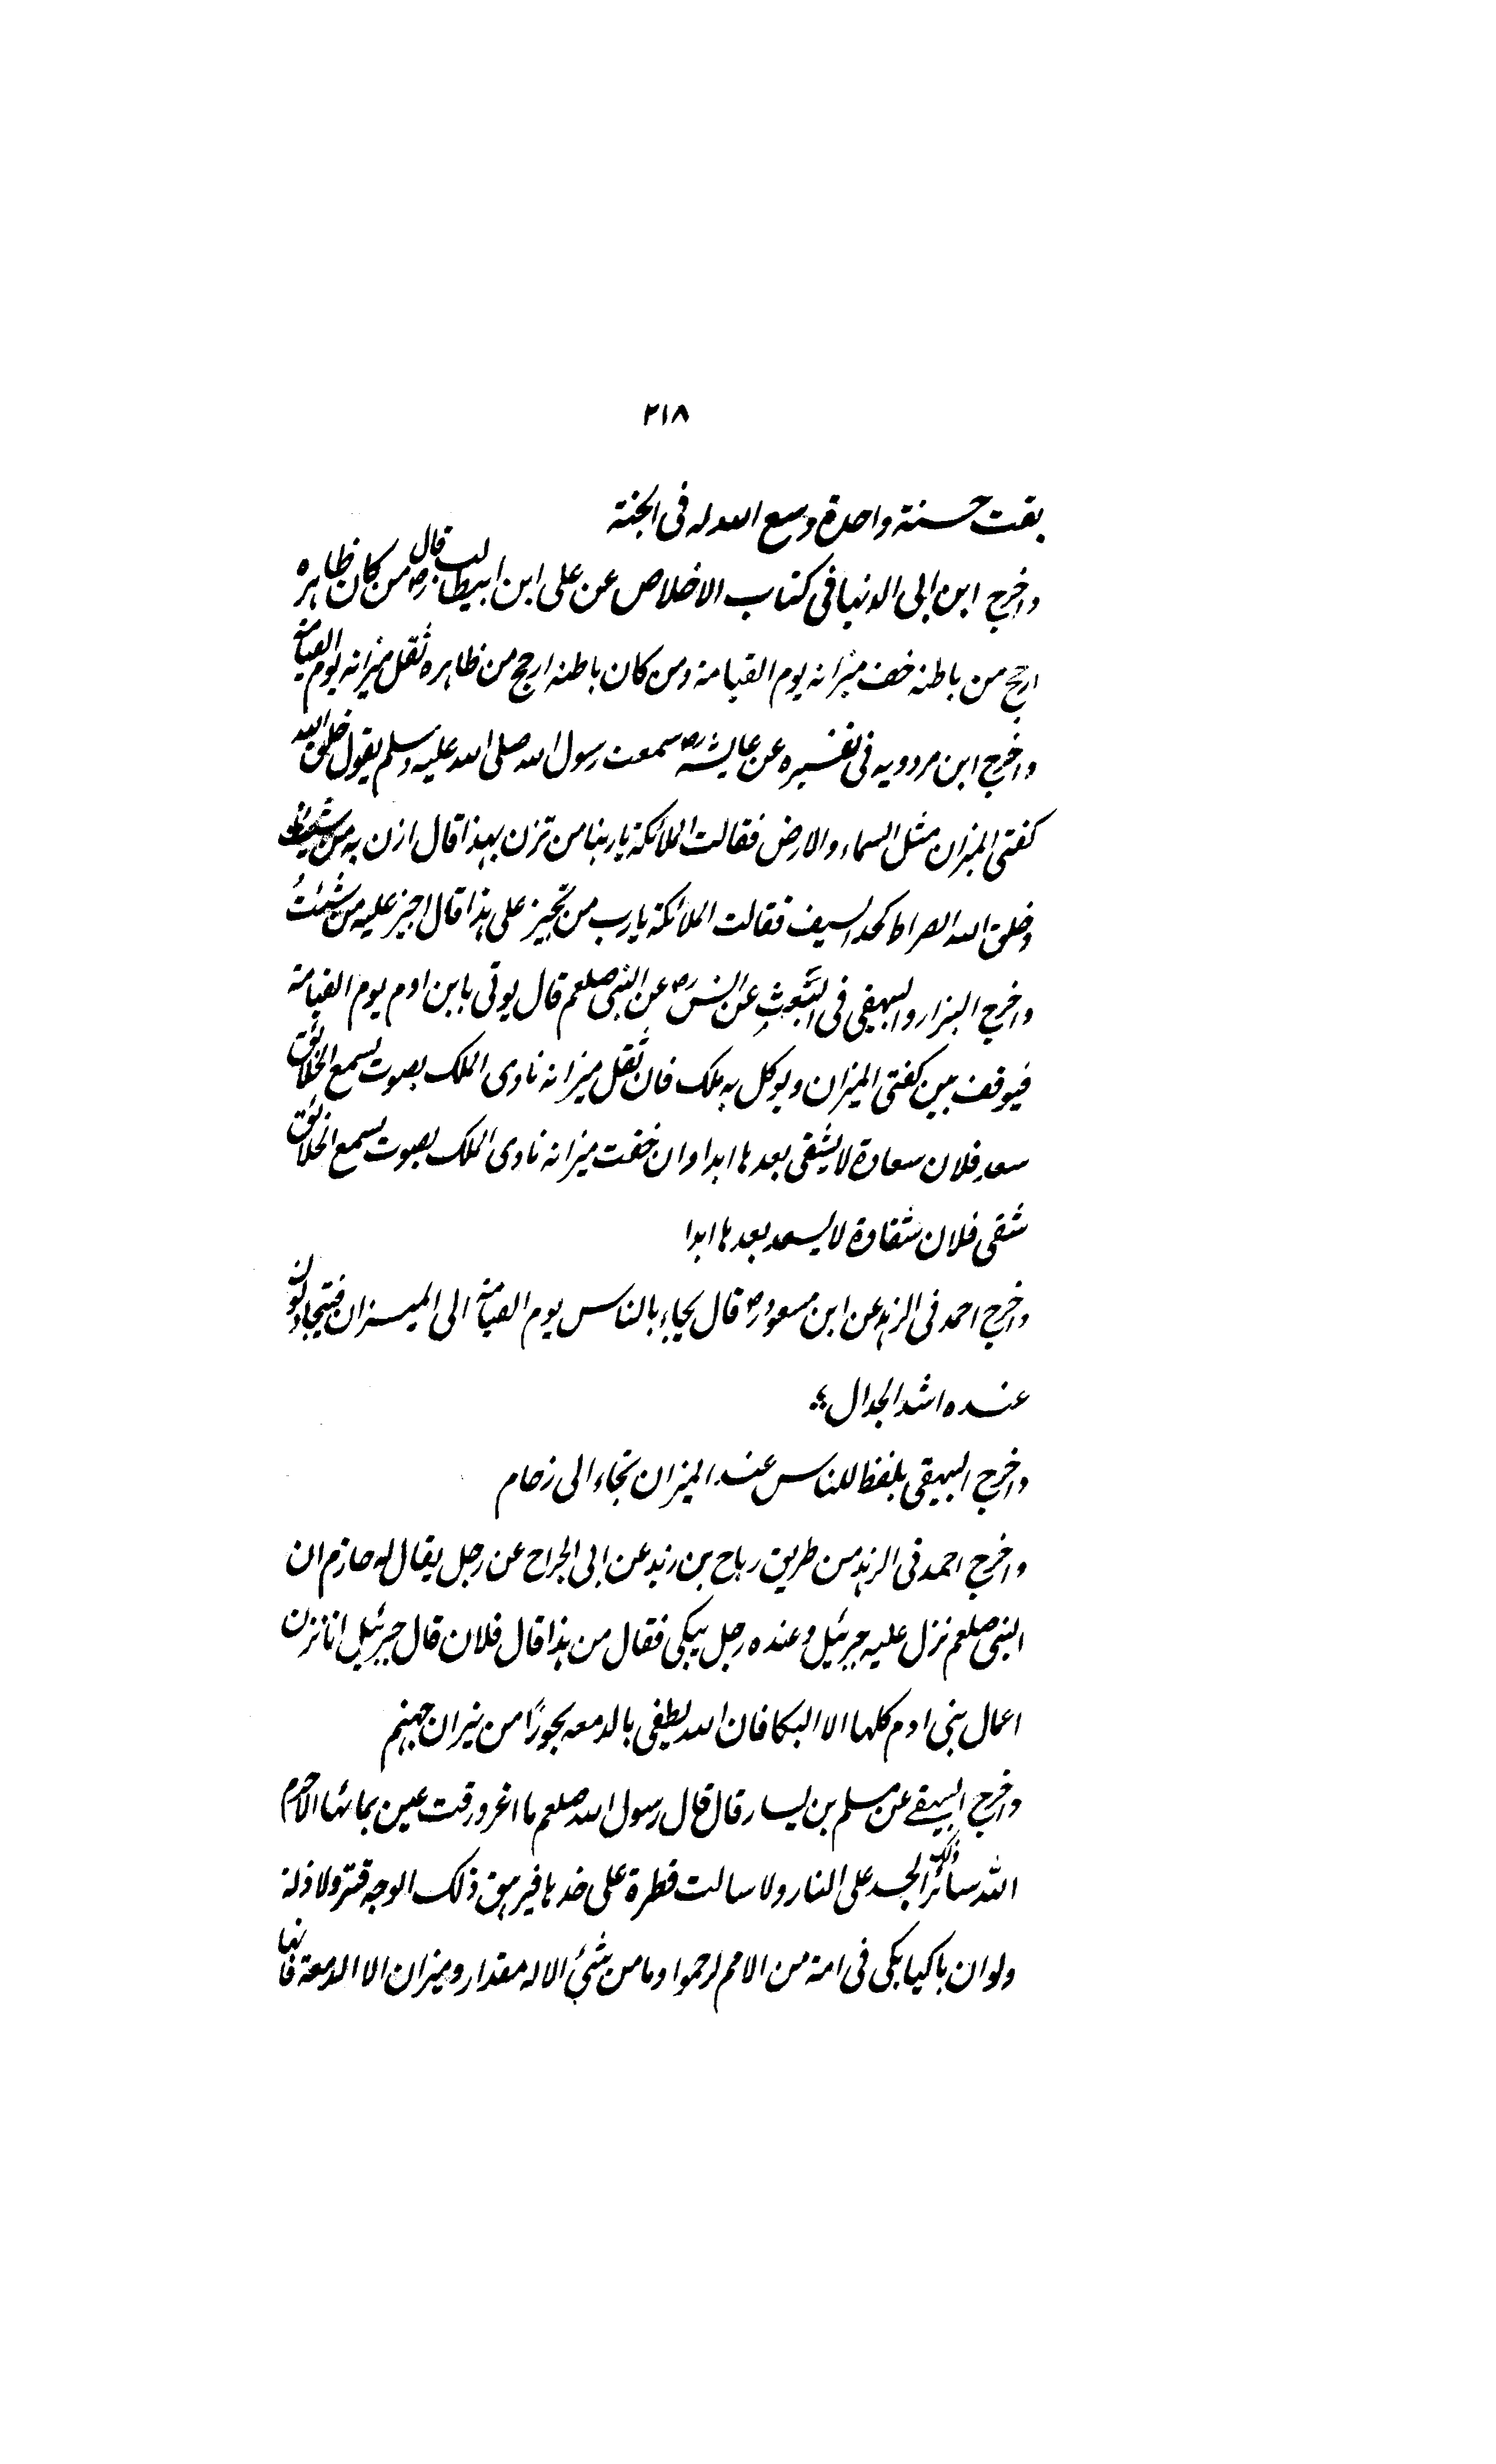 ۲۱۸
بقت حسنة واحدة وسع الله له فی الجنة
واخرج ابن ابی الدنیا فی کتاب الاخلاص عن علی ابن ابیطالب رض قال من کان ظاہرہ
ارجح من باطنہ خف میزانہ یوم القیامة ومن کان باطنہ ارجح من ظاہرہ ثقل میزانہ یوم القیامة
واخرج ابن مردویہ فی تفسیرہ عن عایشہ رض سمعت رسول الله صلی الله علیہ وسلم یقول خلق الله
کفتی المیزان مثل السماء والارض فقالت الملائکة یا ربنا من تزن بہذا قال ازن بہ من شئت
وخلق الله الصراط کحد السیف فقالت الملائکة یا رب من تجیز علی ہذا قال اجیز علیہ من شئتُ
واخرج البزار والبیہقی فی البعث عن انس رض عن النبی صلعم قال یوتی بابن ادم یوم القیامة
فیوقف بین کفتی المیزان ویوکل بہ ملک فان ثقل میزانہ نادی الملک بصوت یسمع الخلائق
سعد فلان سعادة لا یشقی بعدہا ابدا وان خفت میزانہ نادی الملک بصوت یسمع الخلائق
شقی فلان شقاوة لا یسعد بعدہا ابدا
واخرج احمد فی الزہد عن ابن مسعود رض قال یجاء بالناس یوم القیامة الی المیزان فیتجادلون
عندہ اشد الجدال
واخرج البیہقی بلفظ للناس عند المیزان تجاء الی زحام
واخرج احمد فی الزہد من طریق رباح بن زید عن ابی الجراح عن رجل یقال لہ حازم ان
النبی صلعم نزل علیہ جبرئیل وعندہ رجل یبکی فقال من ہذا قال فلان قال جبرئیل انا نزن
اعمال بنی ادم کلہا الا البکا فان الله یطفی بالدمعہ بحورًا من نیران جہنم
واخرج البیہقے عن مسلم بن یسار قال قال رسول الله صلعم ما اغرورقت عین بمائہا الا حرم
الله سائر ذلک الجسد علی النار ولا سالت قطرة علی خدہا فیرہق ذلک الوجہ قتر ولا ذلة
ولو ان باکیا بکی فی امة من الامم لرحموا وما من شیٔ الا لہ مقدار ومیزان الا الدمعة فانہا